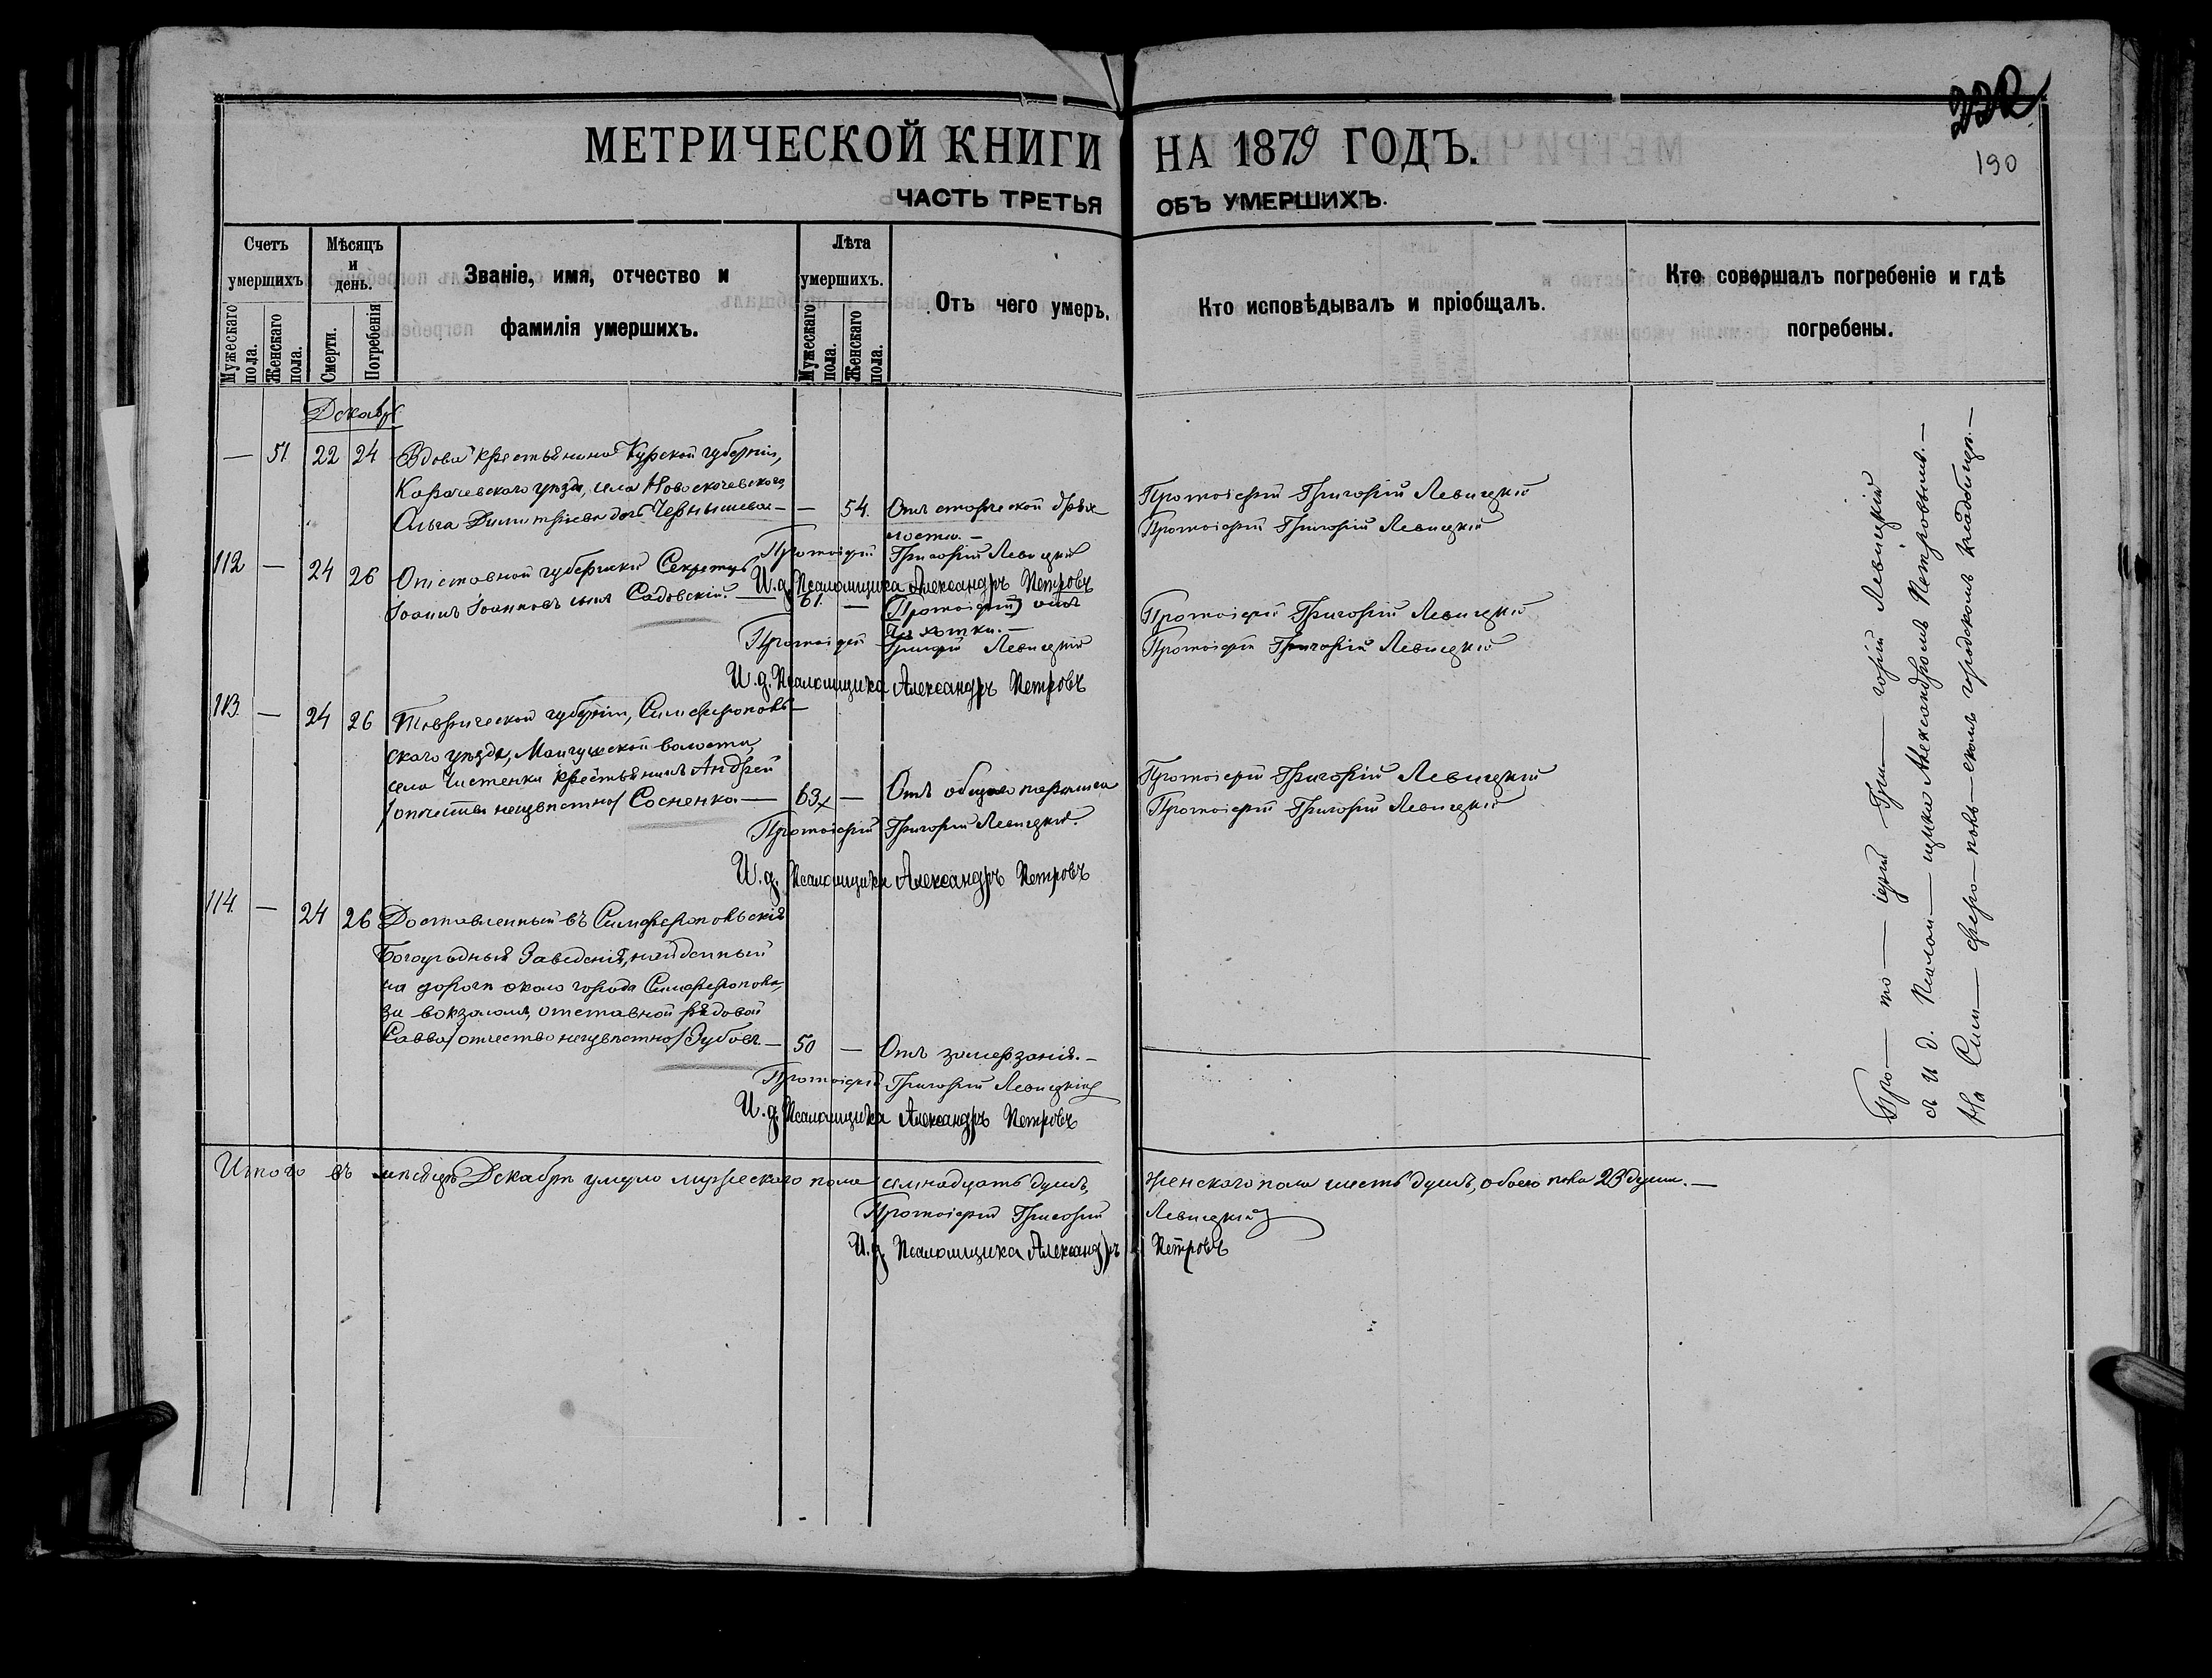 222
190
МЕТРИЧЕСКОЙ КНИГИ НА 1879 ГОДЪ.
ЧАСТЬ ТРЕТЬЯ ОБЪ УМЕРШИХЪ.
Счетъ умершихъ
Мужескаго пола.
Женскаго пола.
Мѣсяцъ и день.
Смерти.
Погребенія
Званіе, имя, отчество и
фамилія умершихъ.
Лѣта умершихъ.
Мужескаго пола.
Женскаго пола.
Отъ чего умеръ.
Кто исповѣдывалъ и пріобщалъ.
Кто совершалъ погребеніе и гдѣ
погребены.
Декабрь
— 51. 22 24 Вдова крестьянина Курской губерніи,
Карачевскаго уѣзда, села
Ольга Димитріева дочь Чернышева — — 54. Отъ старческой дрях-
лости. —
Протоіерей Григорій Левицкій
Протоіерей Григорій Левицкій
Протоіерей Григорій Левицкій
И. д. Псаломщика Александръ Петровъ
112 — 24 26 Отставной губернскій Секретарь
Іоаннъ Іоанновъ сынъ Садовскій. — 61. — (Протоіерей) отъ
чахотки. —
Протоіерей Григорій Левицкій
Протоіерей Григорій Левицкій
Протоіерей Григорій Левицкій
И. д. Псаломщика Александръ Петровъ
113. — 24 26 Таврической губерніи, Симферополь-
скаго уѣзда, Мангушской волости,
села Чистенки крестьянинъ Андрей
/отчество неизвѣстно/ Сосненко. — 63 — Отъ общаго паралича
Протоіерей Григорій Левицкій
Протоіерей Григорій Левицкій
Протоіерей Григорій Левицкій.
И. д. Псаломщика Александръ Петровъ
114. — 24 26 Доставленный въ Симферопольскія
Богоугодныя Заведенія, найденный
на дорогѣ около города Симферополя,
за вокзаломъ, отставной рядовой
Савва /отчество неизвѣстно/ Зубовъ. — 50 — Отъ замерзанія. —
Протоіерей Григорій Левицкій
И. д. Псаломщика Александръ Петровъ
Про — то — іерей Гри — горій Левицкій
съ И. д. Псалом — щика Александромъ Петровымъ. —
На Сим — феро — поль — скомъ городскомъ кладбищѣ. —
Итого въ мѣсяцѣ Декабрѣ умерло мужескаго пола семнадцать душъ, женскаго пола шесть душъ, обоего пола 23 души. —
Протоіерей Григорій Левицкій
И. д. Псаломщика Александръ Петровъ